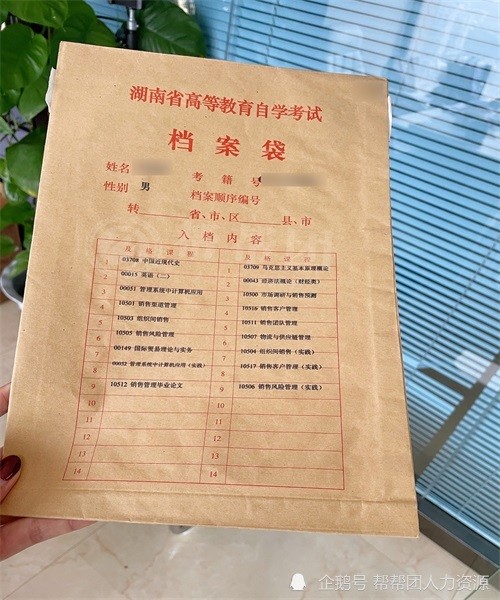 湖南省高等教育自学考试
档案袋
姓名 考籍号
性别 男 档案顺序编号
转 省、市、区 县、市
入档内容
及格课程 及格课程
1 03708 中国近现代史 1 03709 马克思主义基本原理概论
2 00015 英语（二） 2 00043 经济法概论（财经类）
3 00051 管理系统中计算机应用 3 10500 市场调研与销售预测
4 10501 销售渠道管理 4 10516 销售客户管理
5 10503 组织间销售 5 10511 销售团队管理
6 10505 销售风险管理 6 10507 物流与供应链管理
7 00149 国际贸易理论与实务 7 10504 组织间销售（实践）
8 00052 管理系统中计算机应用（实践） 8 10517 销售客户管理（实践）
9 10512 销售管理毕业论文 9 10506 销售风险管理（实践）
10 10
11 11
12 12
13 13
14 14
企鹅号 帮帮团人力资源